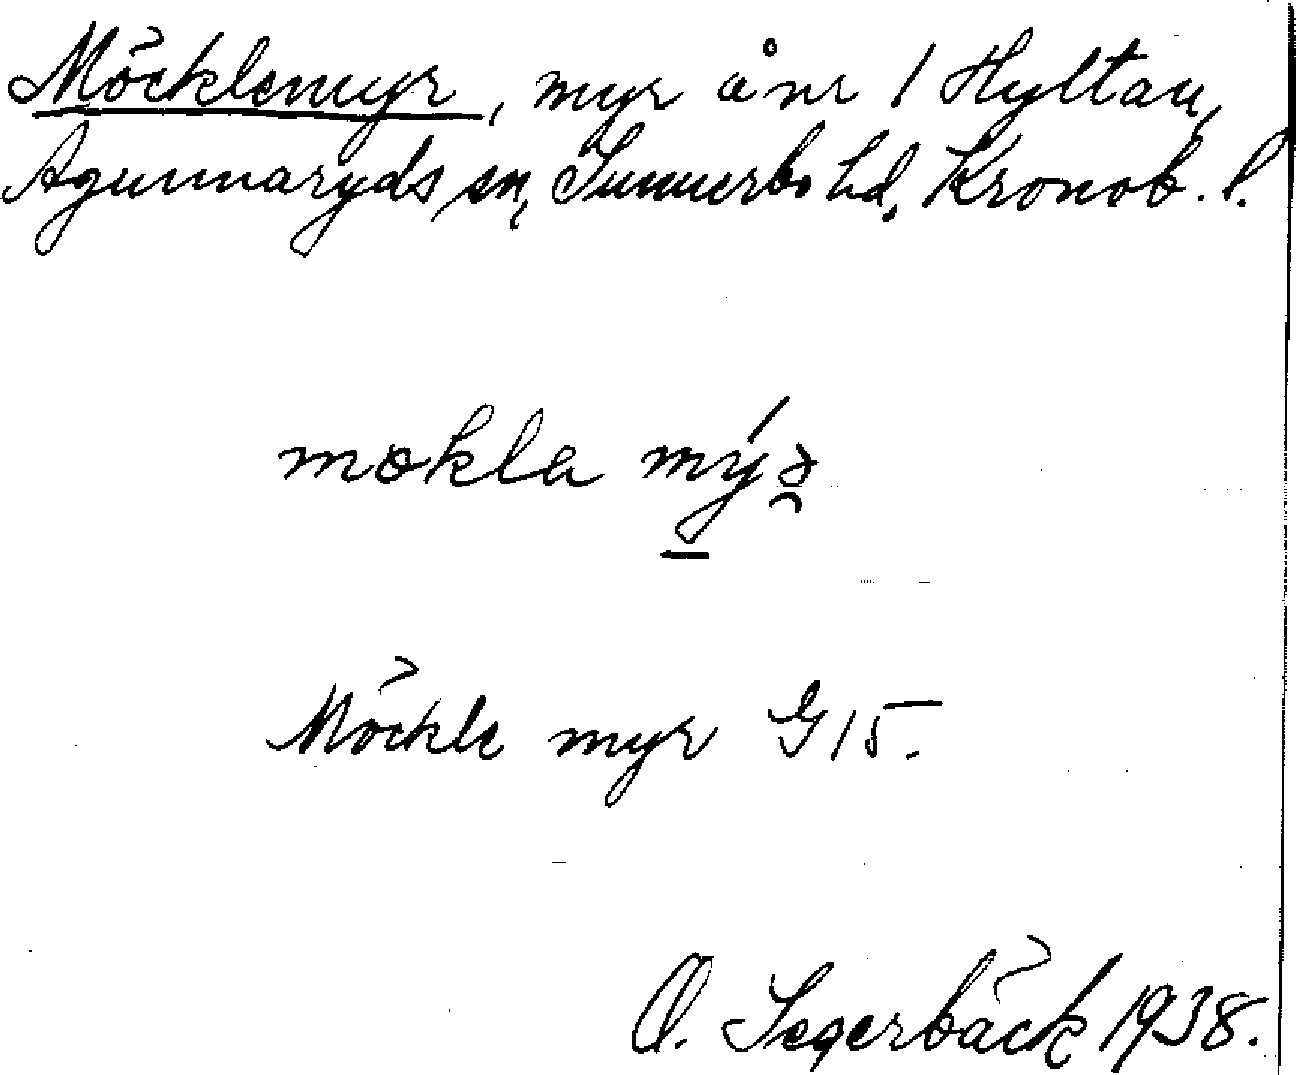 Möcklemyr, myr å nr 1 Hyltan,
Agunnaryds sn, Sunnerbo hd, Kronob. l.
møkla mýꝛ
Möckle myr G 15.
O. Segerbäck 1938.